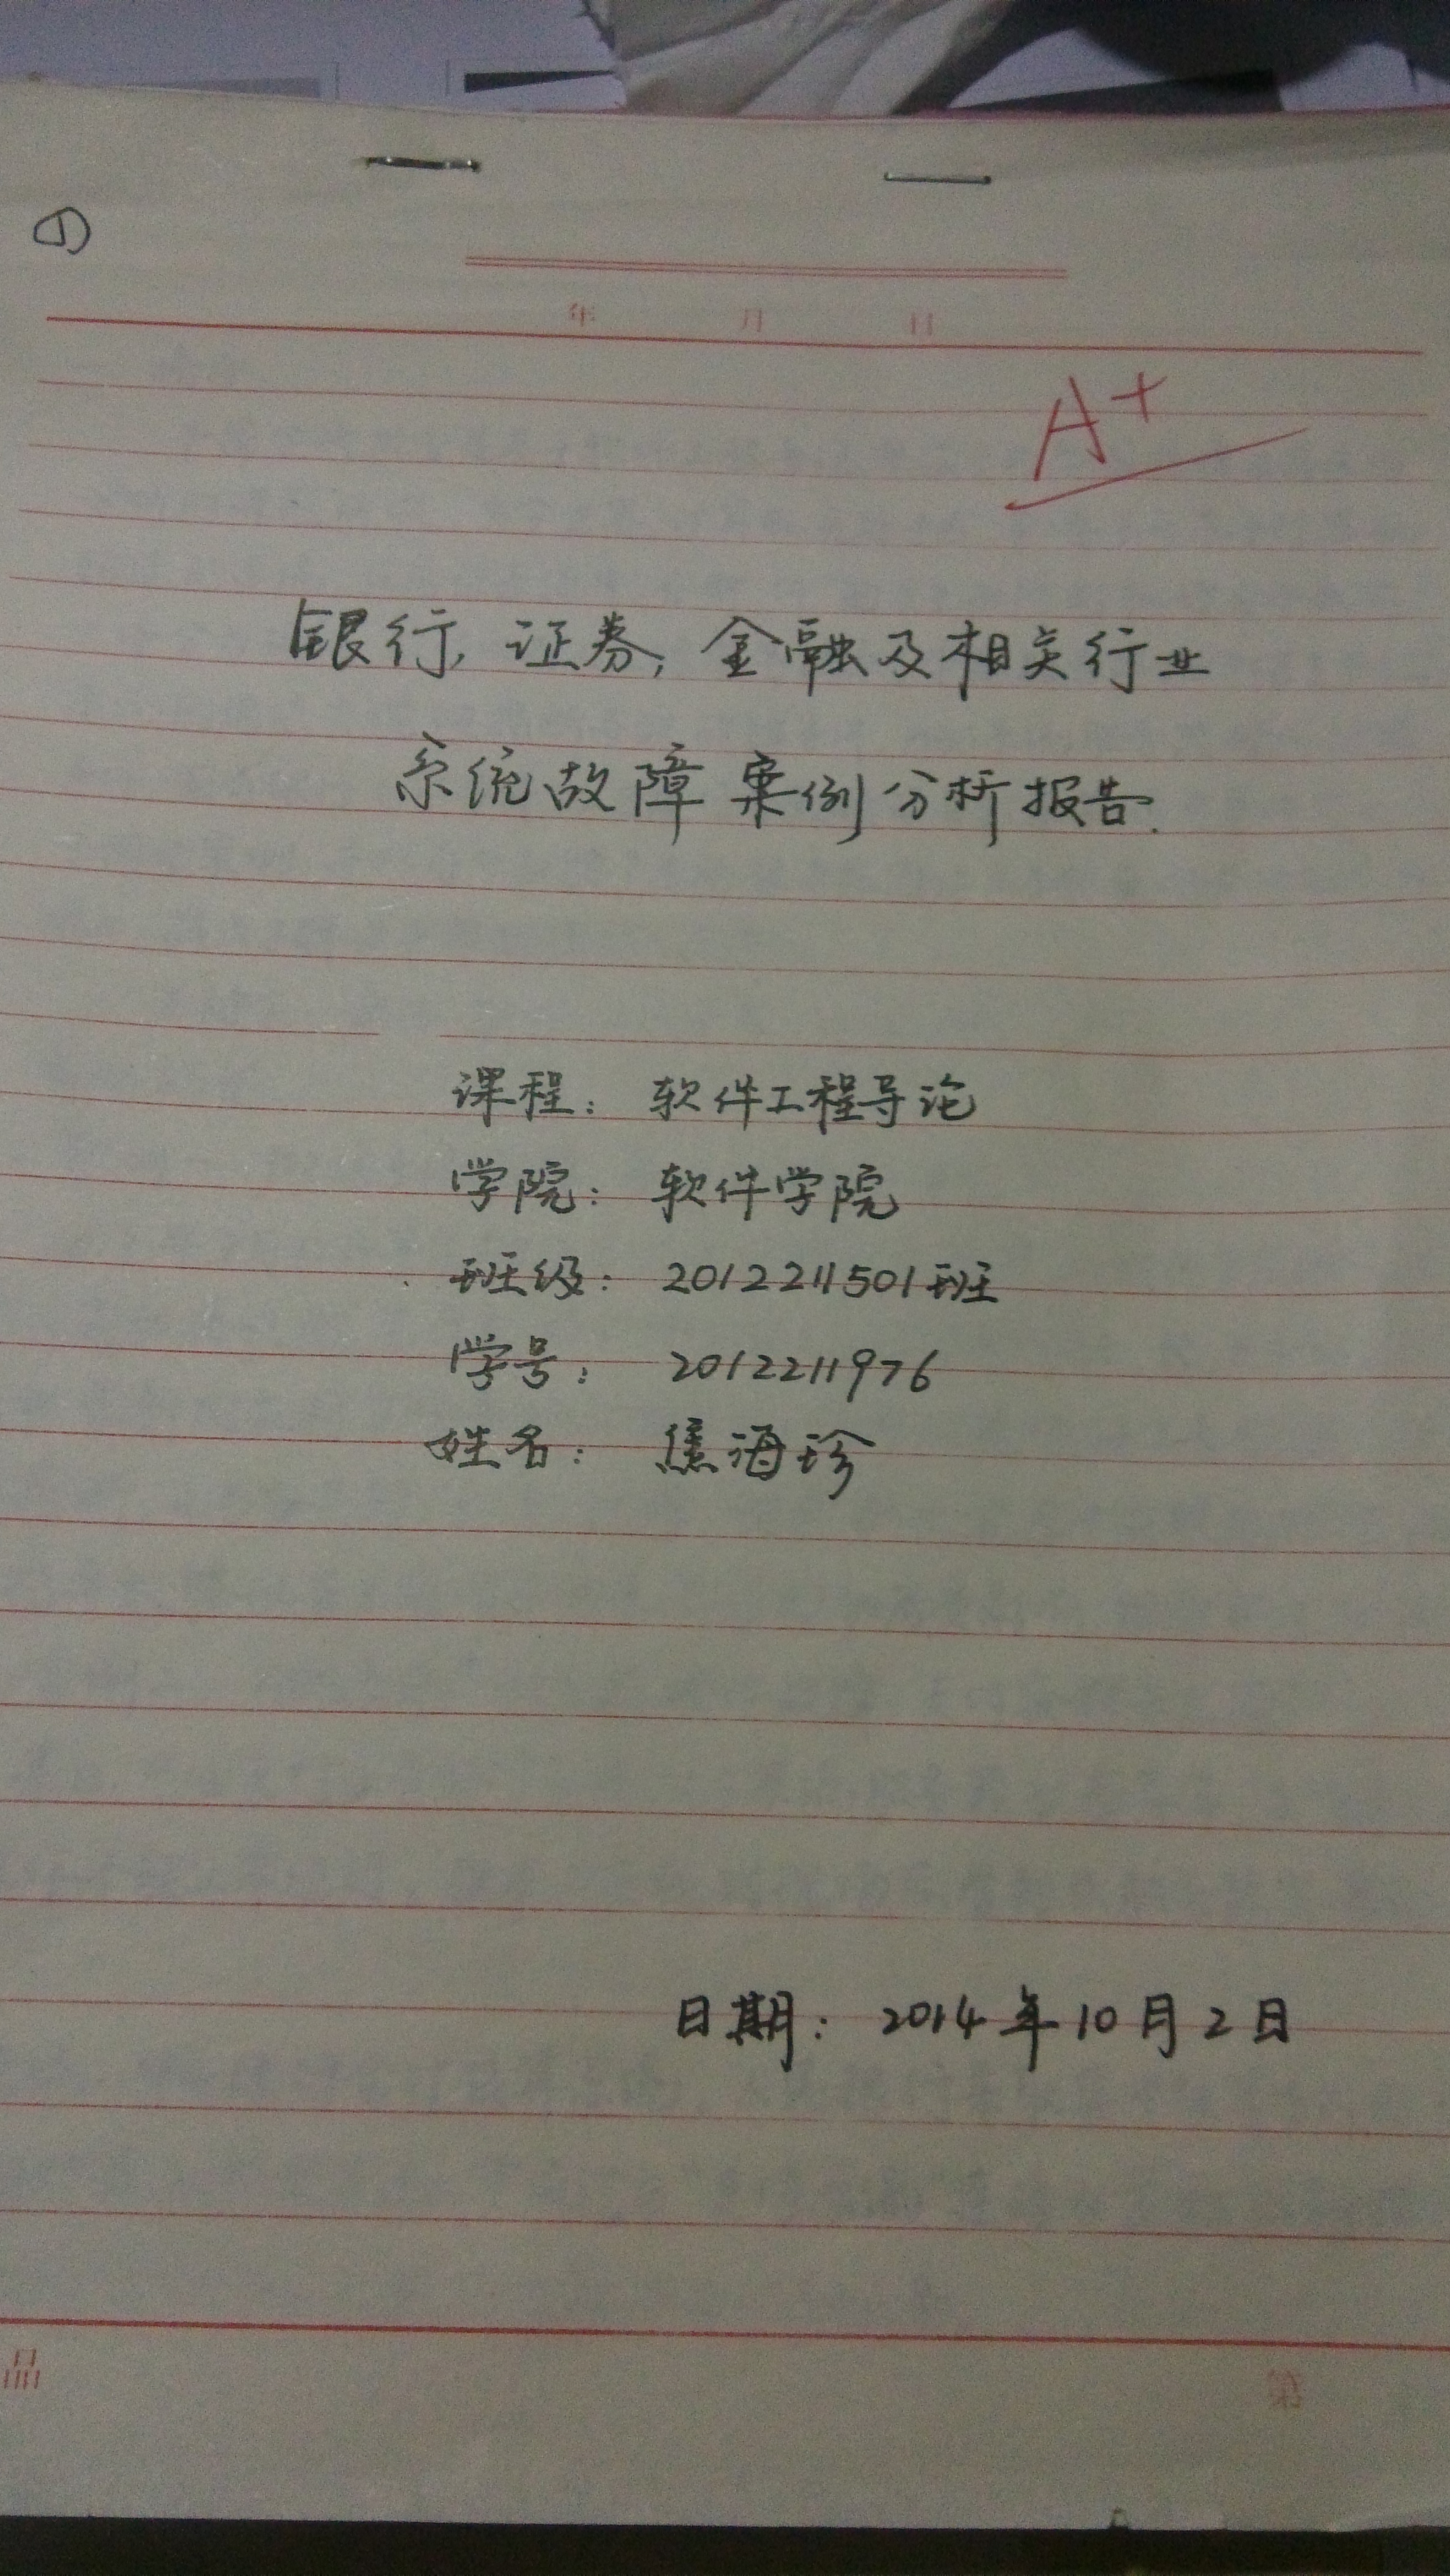 ①
年 月 日
A+
银行, 证券, 金融及相关行业
系统故障案例分析报告.
课程: 软件工程导论
学院: 软件学院
班级: 2012211501班
学号: 2012211976
姓名: 焦海珍
日期: 2014年10月2日
品 第